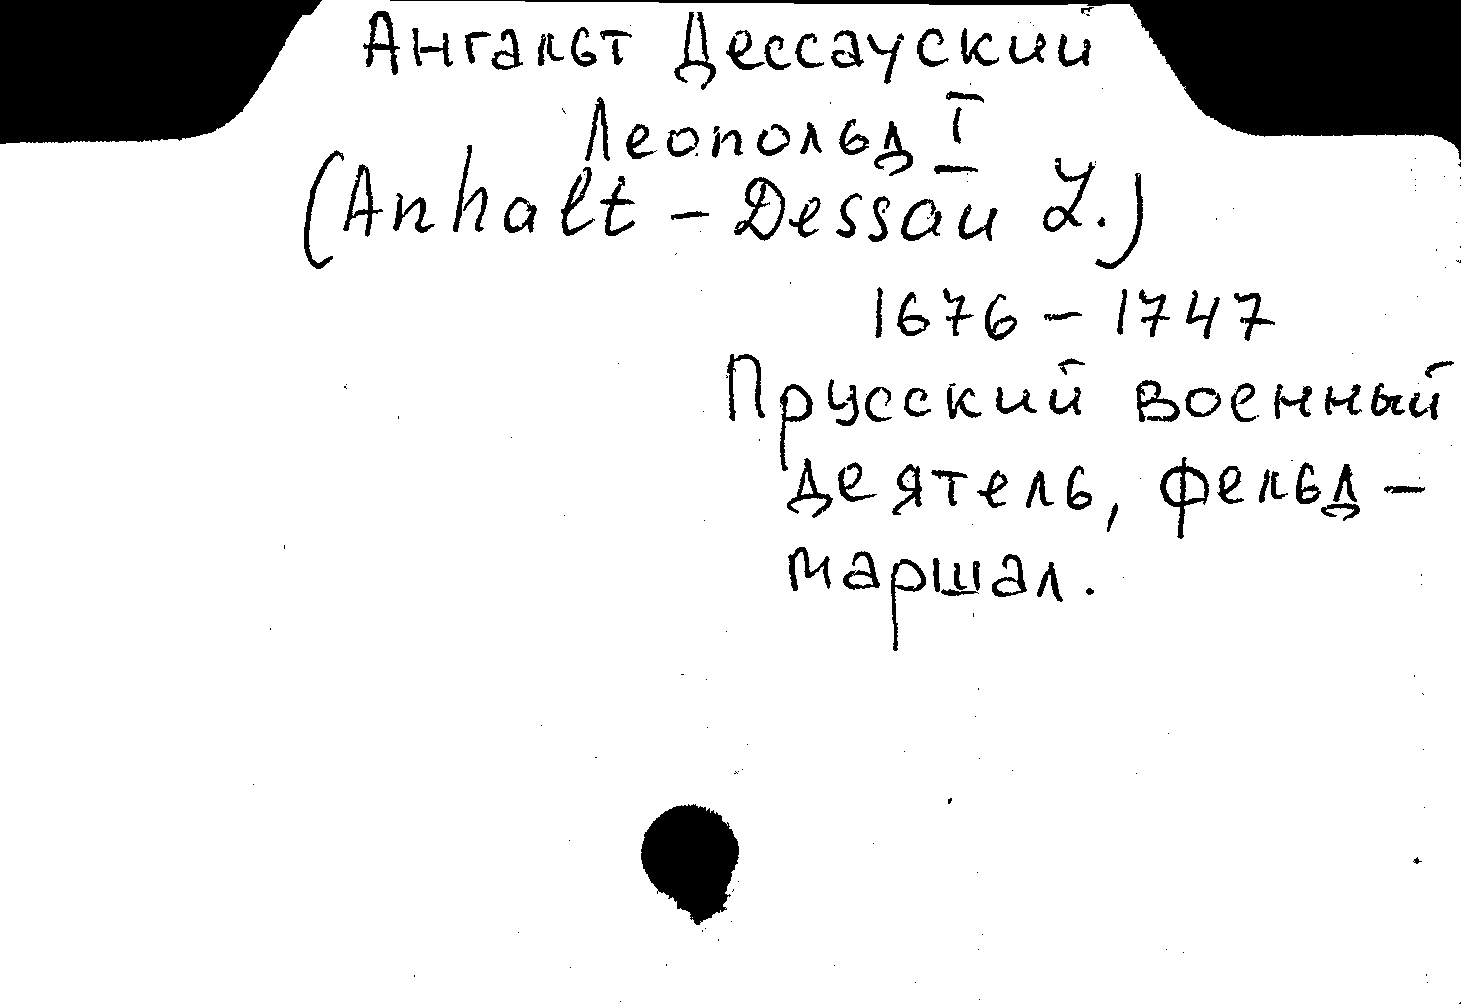 Ангальт Дессауский
Леопольд I
(Anhalt - Dessau L.)
1676 - 1747
Прусский военный
деятель, фельд-
маршал.